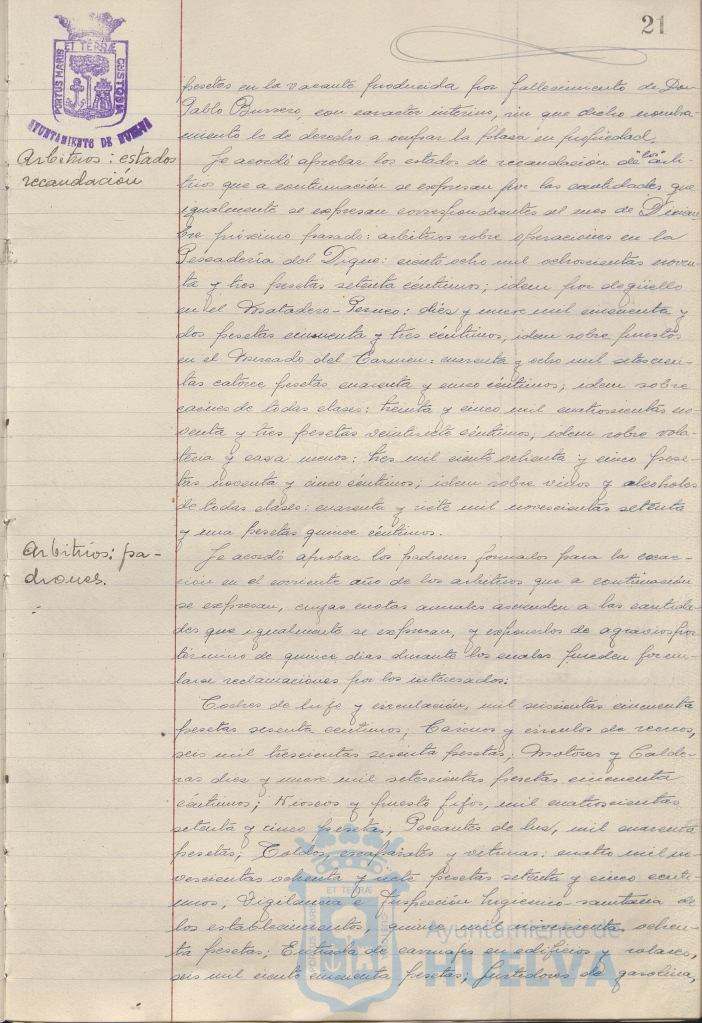 21
PORTUS MARIS ET TERRÆ CUSTODIA
AYUNTAMIENTO DE HUELVA
pesetas en la vacante producida por fallecimiento de Don
Pablo Bussero, con caracter interino, sin que dicho nombra-
miento le de derecho a ocupar la plaza en propiedad.
Arbitrios: estados
recaudación
Se acordó aprobar los estados de recaudación de "los" arbi-
trios que a continuación se expresan por las cantidades que
igualmente se expresan correspondientes al mes de Diciem-
bre próximo pasado: arbitrios sobre operaciones en la
Pescadería del Dique: ciento ocho mil ochocientas noven-
ta y tres pesetas setenta céntimos; idem por degüello
en el Matadero-Perneo: diez y nueve mil cincuenta y
dos pesetas cincuenta y tres céntimos; idem sobre puestos
en el Mercado del Carmen: cuarenta y ocho mil setecien-
tas catorce pesetas cuarenta y cinco céntimos; idem sobre
carnes de todas clases: treinta y cinco mil cuatrocientas no-
venta y tres pesetas veintisiete céntimos; idem sobre vola-
tería y caza menor: tres mil ciento ochenta y cinco pese-
tas noventa y cinco céntimos; idem sobre vinos y alcoholes
de todas clases: cuarenta y siete mil novecientas setenta
y una pesetas quince céntimos.
Arbitrios: pa-
drones.
Se acordó aprobar los padrones formados para la exac-
ción en el corriente año de los arbitrios que a continuación
se expresan, cuyas cuotas anuales ascienden a las cantida-
des que igualmente se expresan, y exponerlos de agravios por
término de quince dias durante los cuales pueden formu-
larse reclamaciones por los interesados:
Coches de lujo y circulación, mil seiscientas cincuenta
pesetas sesenta céntimos; Casinos y circulos de recreo,
seis mil trescientas sesenta pesetas; Motores y Calde-
ras diez y nueve mil setecientas pesetas cincuenta
céntimos; Kioscos y puesto fijos, mil cuatrocientas
setenta y cinco pesetas; Pescantes de luz, mil cuarenta
pesetas; Toldos, escaparates y vitrinas: cuatro mil no-
vescientas ochenta y siete pesetas setenta y cinco cénti-
mos, Vigilancia e Inspección higienico-sanitaria de
los establecimientos, quince mil novecientas ochen-
ta pesetas; Entrada de carruajes en edificios y solares,
seis mil ciento cincuenta pesetas; Surtidores de gasolina,
Ayuntamiento de
HUELVA